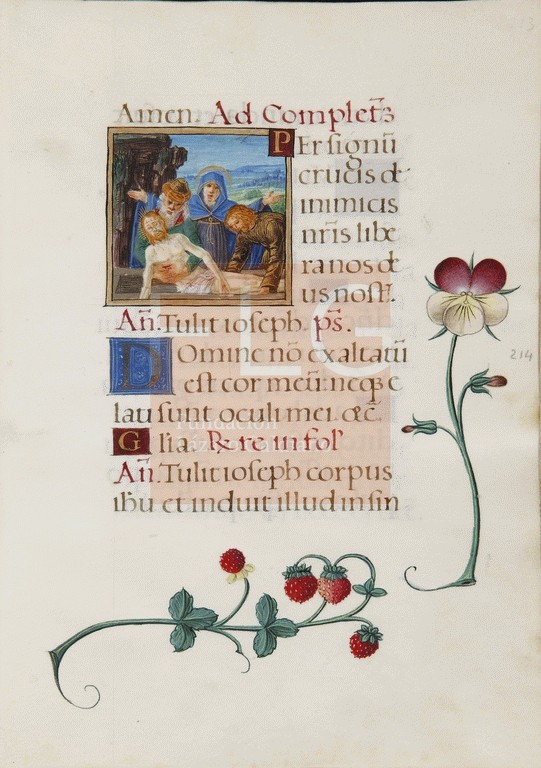 Amen. Ad Complet̃з
PEr signũ
crucis de
inimicis
nr̃is libe
ra nos de
us nost̃.
Añ. Tulit ioseph. ps̃.
DOmine nõ exaltatũ
est cor meũ: neqз e
lati sunt oculi mei. &c̃.
Glia. Rx̃ re in fol̃
Añ. Tulit ioseph corpus
ihũ et induit illud in sin
214
FLG
Fundación